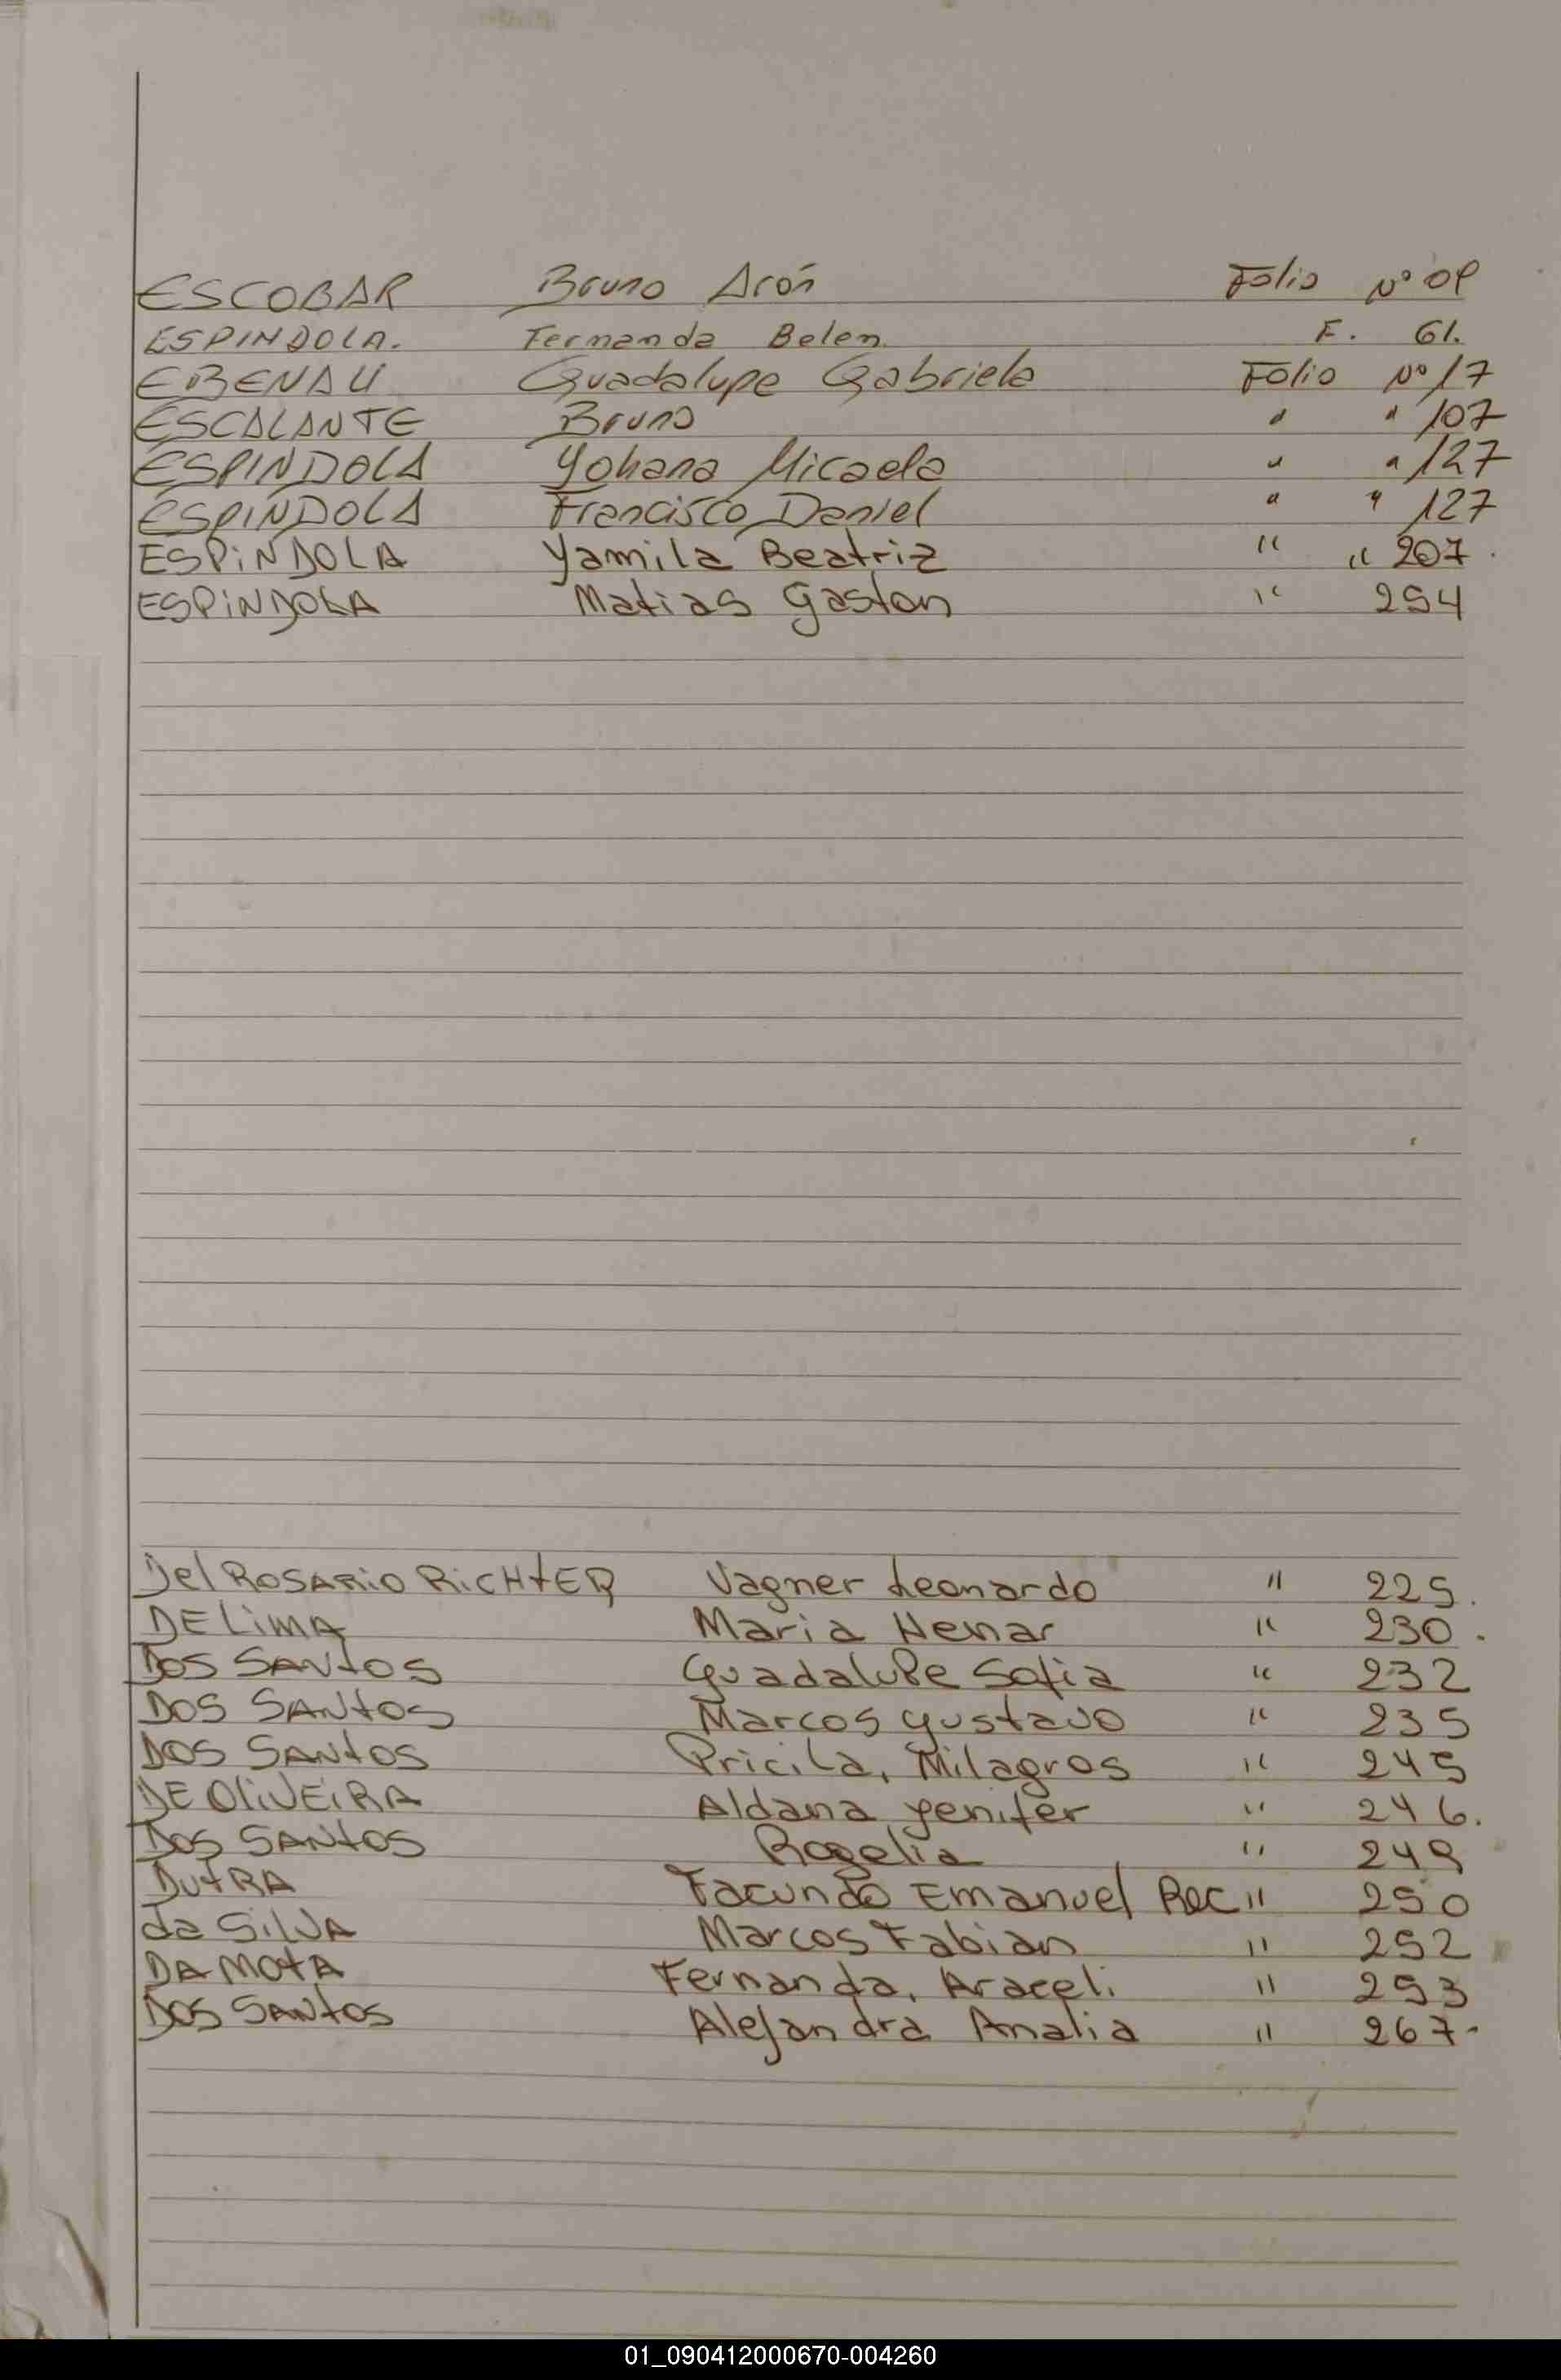 ESCOBAR Bruno Arón Folio Nº 09
ESPINDOLA. Fernanda Belen. F. 61.
EBENAU Guadalupe Gabriela Folio Nº 17
ESCALANTE Bruno " " 107
ESPINDOLA Yohana Micaela " " 127
ESPINDOLA Francisco Daniel " " 127
ESPiNDOLA Yamila Beatriz " " 207.
ESPiNDOLA Matias Gaston " 254
Del ROSARiO RiCHtER Vagner Leonardo " 225.
DE LiMA Maria Henar " 230.
DOS SANtOS Guadalupe Sofia " 232
DOS SANtOS Marcos Gustavo " 235
DOS SANtOS Pricila, Milagros " 245
DE OliVEiRA Aldana Yenifer " 246.
DOS SANtOS Rogelia " 249
DUtRA Facundo Emanuel Rec " 250
da SilVA Marcos Fabian " 252
DA MOtA Fernanda, Araceli " 253
DOS SANtOS Alejandra Analia " 267-
01_090412000670-004260